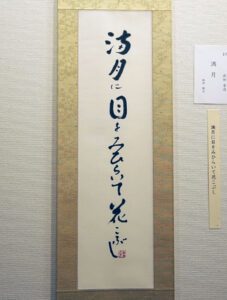 満月に目をみひらいて花こぶし
満月
満月に目をみひらいて花こぶし